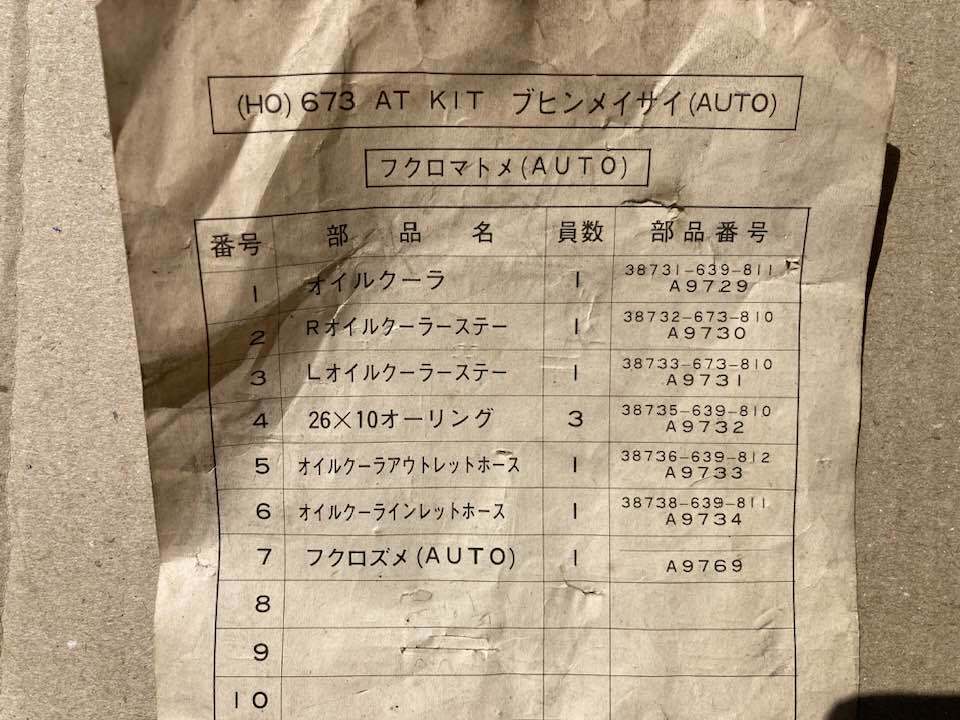 (HO) 673 AT KIT ブヒンメイサイ(AUTO)
フクロマトメ(AUTO)
番号 部品名 員数 部品番号
1 オイルクーラ 1 38731-639-811 A9729
2 Rオイルクーラーステー 1 38732-673-810 A9730
3 Lオイルクーラーステー 1 38733-673-810 A9731
4 26×10オーリング 3 38735-639-810 A9732
5 オイルクーラアウトレットホース 1 38736-639-812 A9733
6 オイルクーラインレットホース 1 38738-639-811 A9734
7 フクロズメ(AUTO) 1 A9769
8
9
10